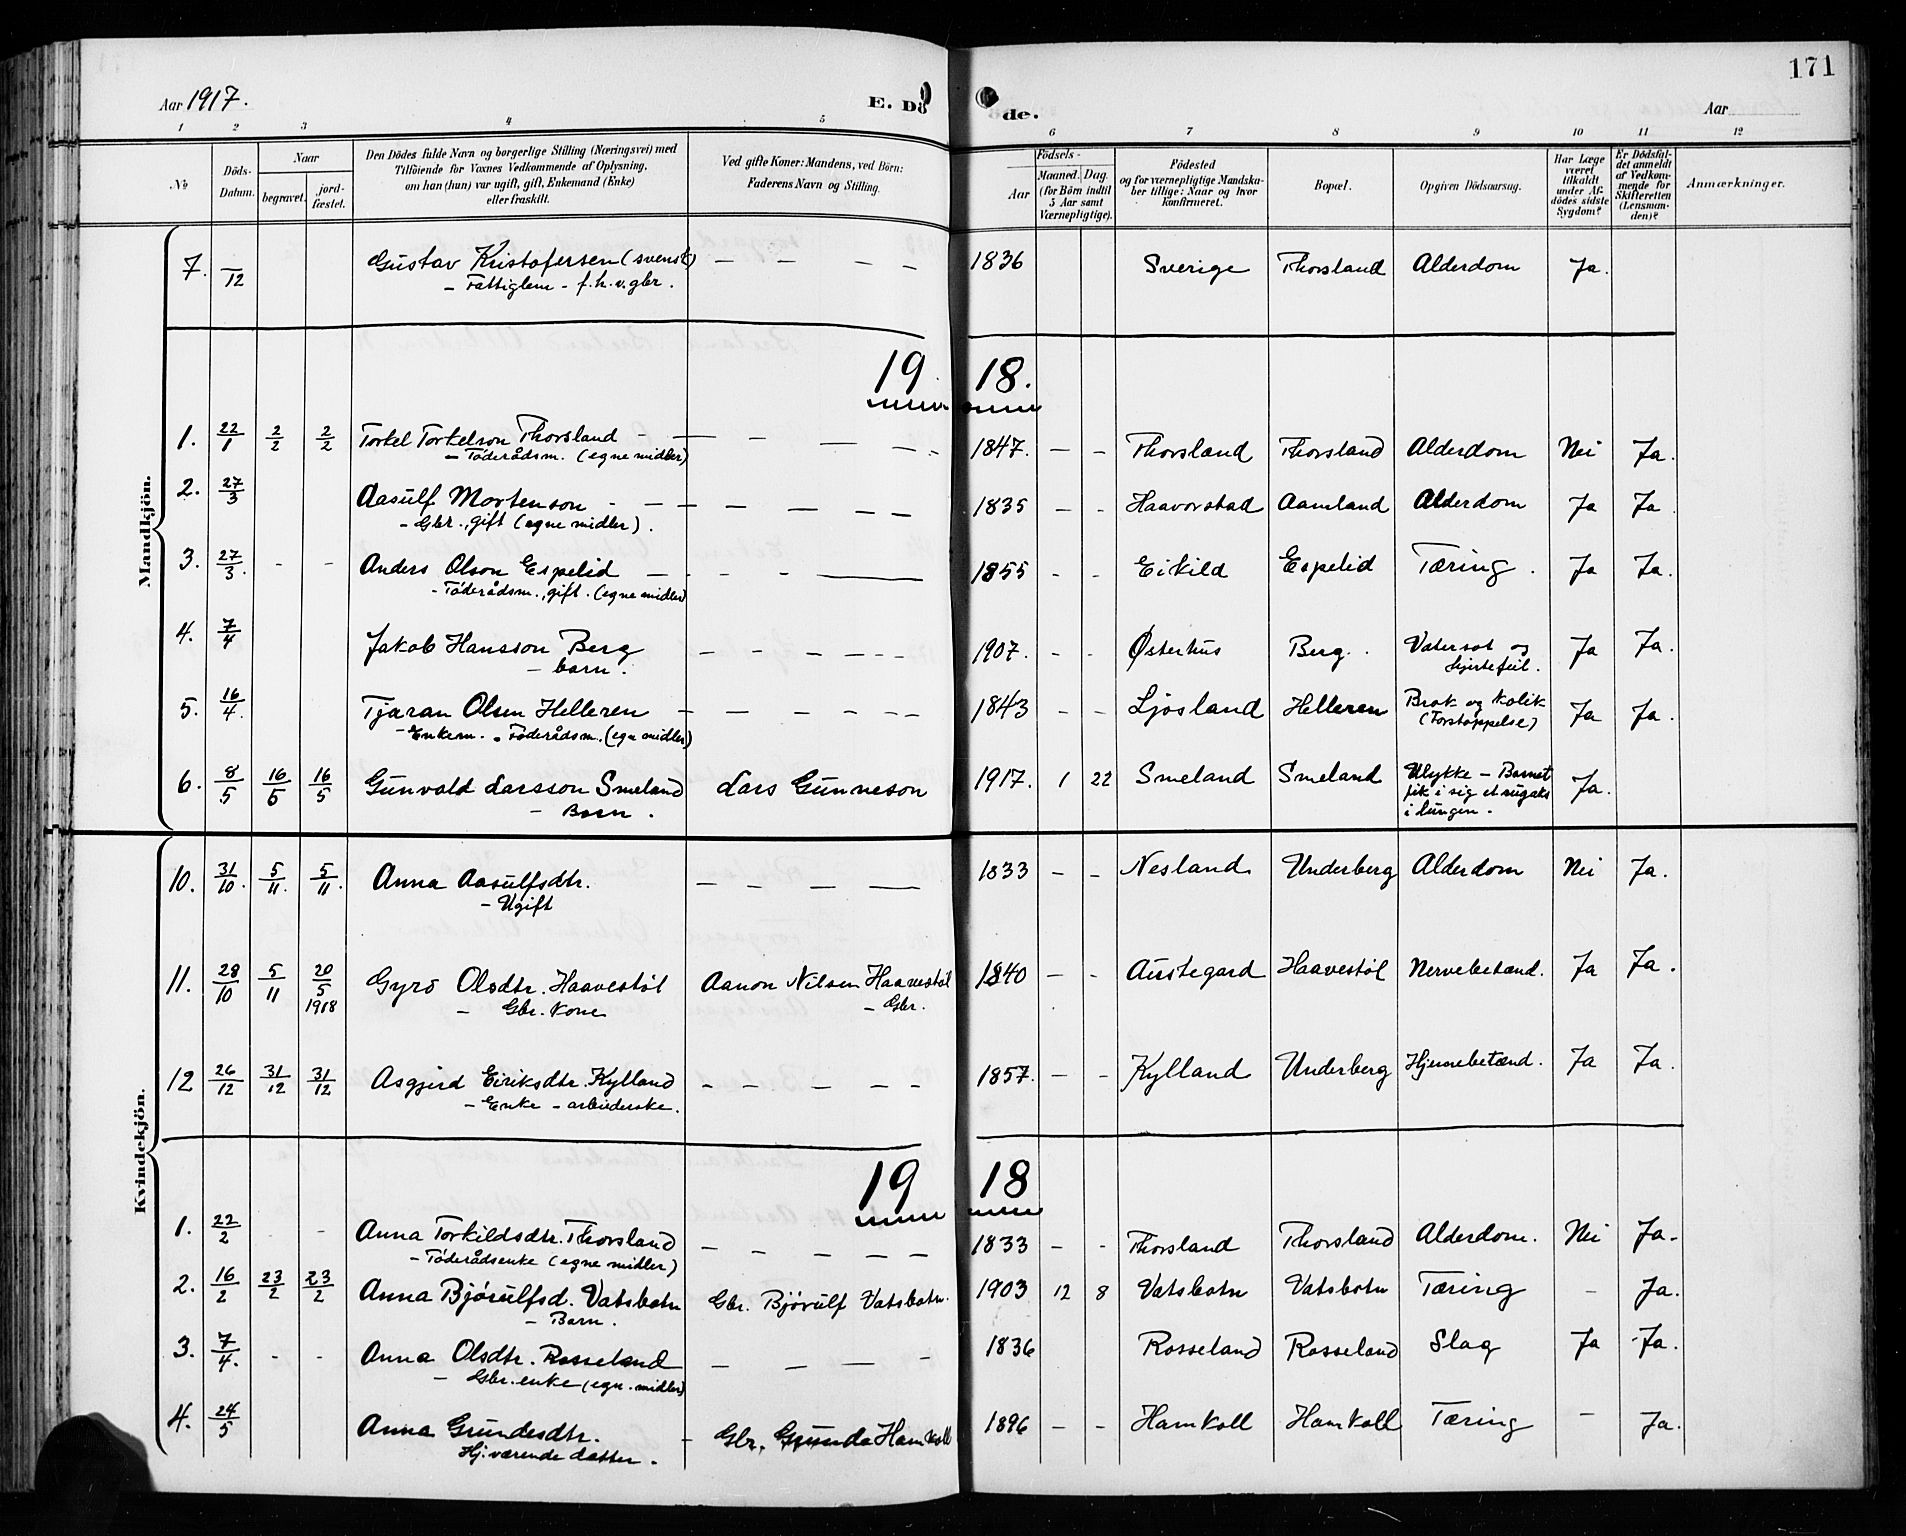 171
Aar 1917. E. Dö de. Aar
1 2 3 4 5 6 7 8 9 10 11 12
No
Döds-Datum.
Naar
begravet.
jord-fæstet.
Den Dödes fulde Navn og borgerlige Stilling (Næringsvei) med
Tilföiende for Voxnes Vedkommende af Oplysning,
om han (hun) var ugift, gift, Enkemand (Enke)
eller fraskilt.
Ved gifte Koner: Mandens, ved Börn:
Faderens Navn og Stilling.
Födsels-
Aar
Maaned. Dag.
(for Börn indtil
5 Aar samt
Værnepligtige).
Födested
og for værnepligtige Mandska-
ber tillige: Naar og hvor
konfirmeret.
Bopæl.
Opgiven Dödsaarsag.
Har Læge
været
tilkaldt
under Af-
dödes sidste
Sygdom?
Er Dödsfal-
det anmeldt
af Vedkom-
mende for
Skifteretten
(Lensman-
den)?
Anmærkninger.
Mandkjön.
7. —/12 Gustav Kristofersen (svensk) — — — — 1836 Sverige Thorsland Alderdom Ja.
- Fattiglem - f.h.v. gbr.
19 18.
1. 22/1 2/2 2/2 Torkel Torkelson Thorsland - — — — — - 1847. — - Thorsland Thorsland Alderdom Nei Ja.
- Föderådsm. (egne midler)
2. 27/3 Aasulf Mortenson - — — — — — 1835 - - Haavorstad Aamland Alderdom Ja Ja
- Gbr., gift (egne midler).
3. 27/3. - - Anders Olson Espelid — - - — 1855 - - Eikild Espelid Tæring. Ja Ja.
- Föderådsm., gift. (egne midler)
4. 7/4 Jakob Hansson Berg — — — — — 1907. - - Østerhus Berg. Vatersot og Ja Ja.
- barn. hjertefeil.
5. 16/4. Tjaran Olsen Helleren — — — — — 1843 - - Ljosland Helleren Brok og Kolik Ja Ja.
- Enkem. - Föderådsm. (egn midler) (Forstoppelse)
6. 8/5 16/5 16/5 Gunvald Larsson Smeland Lars Gunneson 1917. 1 22 Smeland Smeland Ulykke - Barnet Ja.
- Barn. fik i sig et rugaks
i lungen -
Kvindekjön.
10. 31/10. 5/11. 5/11. Anna Aasulfsdtr. — — — — 1833 - - Nesland Underberg Alderdom Nei Ja.
- Ugift
11. 28/10 5/11 20/5 1918 Gyro Olsdtr. Haavestöl Aanon Nilsen Haavestöl 1840 — - Austegard Haavestöl Nervebetænd. Ja Ja.
- Gbr. Kone - Gbr.
12 26/12 31/12 31/12 Asgjerd Eiriksdtr. Kylland - — — — — 1857. — - Kylland Underberg Hjernebetænd. Ja Ja.
- Enke - arbeiderske.
19 18
1. 22/2 - - Anna Torkildsdtr. Thorsland — — — — — 1833 — - Thorsland Thorsland Alderdom. Nei Ja.
- Föderådsenke (egne midler)
2. 16/2 23/2 23/2 Anna Bjørulfsd. Vatsbotn Gbr. Bjørulf Vatsbotn. 1903 12 8 Vatsbotn Vatsbotn Tæring - Ja.
- Barn.
3. 7/4. - - Anna Olsdtr. Rosseland — — — - 1836 Rosseland Rosseland Slag Ja Ja.
- Gbr. enke (egn. midler)
4. 24/5 Anna Grundesdtr. - Gbr. Grunde Hamkoll 1896 - - Hamkoll Hamkoll Tæring - Ja.
Hj. værende datter.